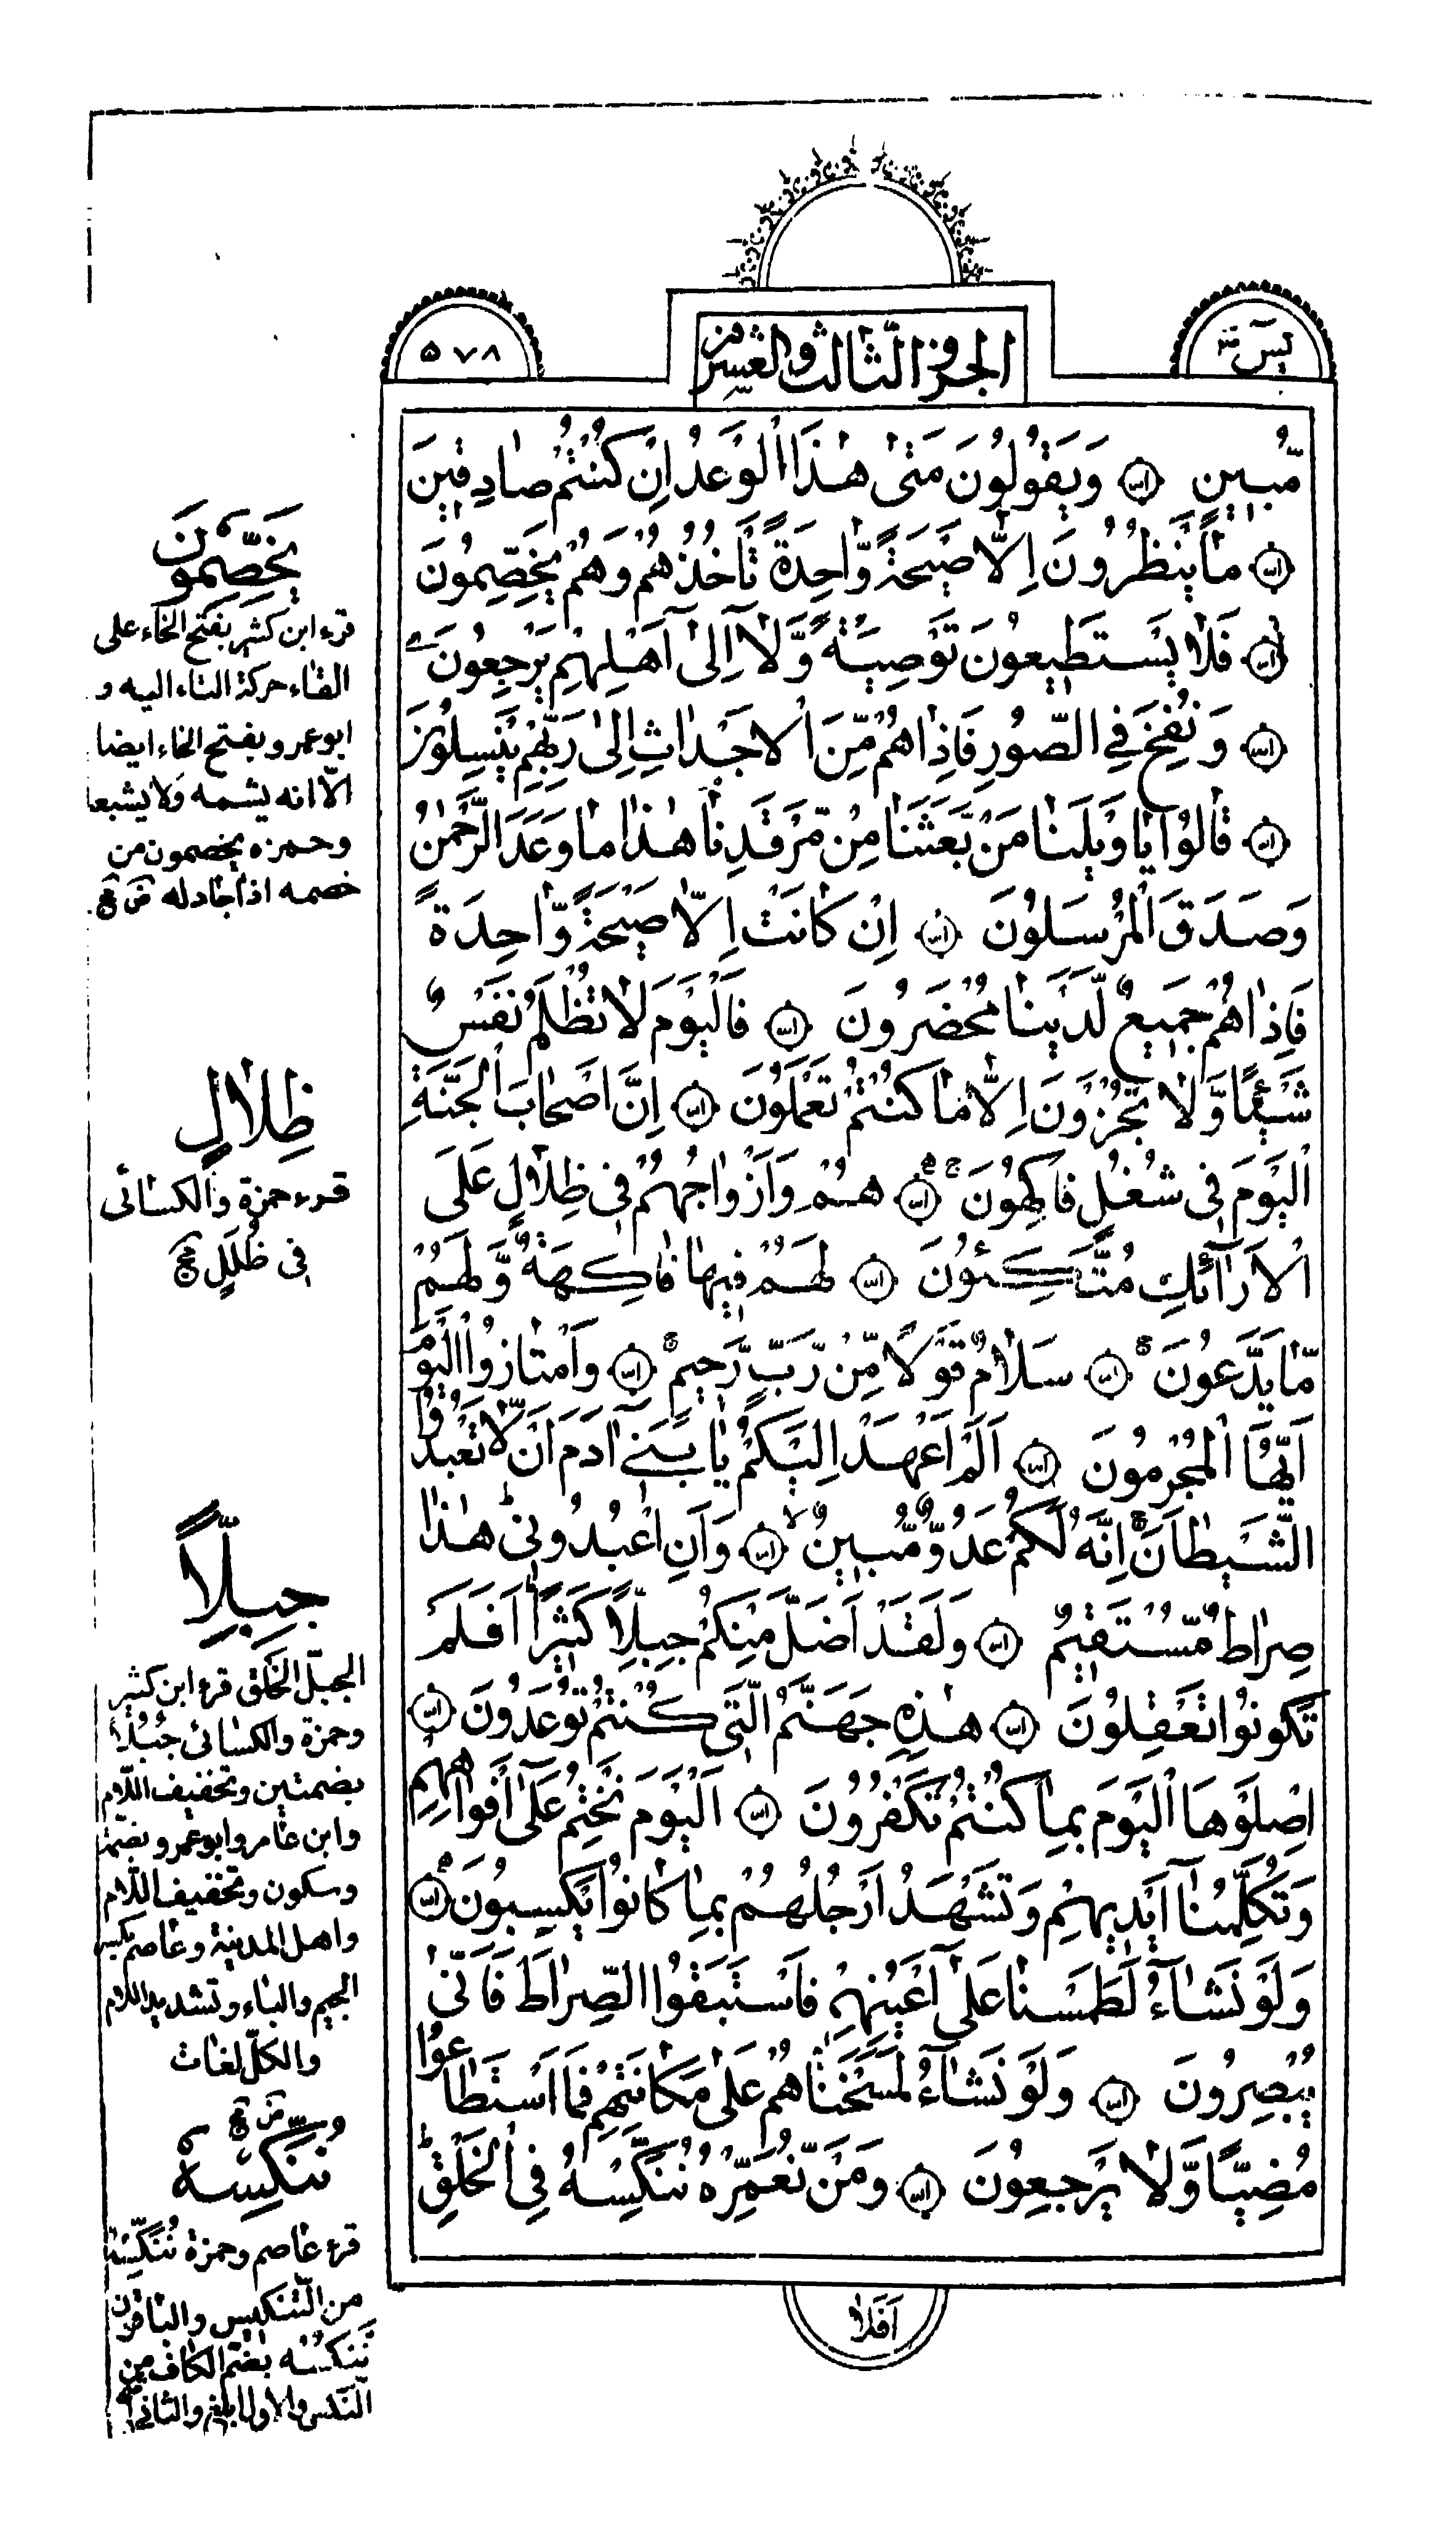 يٓسٓ
الجزؤ الثّالث والعشرون
۵۷۸
مُّبِينٍ وَيَقُولُونَ مَتىٰ هٰذَا الْوَعْدُ اِنْ كُنْتُمْ صٰادِقِينَ
مٰا يَنْظُرُونَ اِلّٰا صَيْحَةً وّٰاحِدَةً تَأْخُذُهُمْ وَهُمْ يَخِصِّمُونَ
فَلٰا يَسْتَطِيعُونَ تَوْصِيَةً وَّلٰآ اِلىٰٓ اَهْلِهِمْ يَرْجِعُونَ ع
وَنُفِخَ فِي الصُّورِ فَاِذٰا هُمْ مِّنَ الْاَجْدٰاثِ اِلىٰ رَبِّهِمْ يَنْسِلُونَ
قٰالُوا يٰا وَيْلَنٰا مَنْ بَعَثَنٰا مِنْ مَّرْقَدِنٰا هٰذٰا مٰا وَعَدَ الرَّحْمٰنُ
وَصَدَقَ الْمُرْسَلُونَ اِنْ كٰانَتْ اِلّٰا صَيْحَةً وّٰاحِدَةً
فَاِذٰا هُمْ جَمِيعٌ لَّدَيْنٰا مُحْضَرُونَ فَالْيَوْمَ لٰا تُظْلَمُ نَفْسٌ
شَيْئًا وَّلٰا تُجْزَوْنَ اِلّٰا مٰا كُنْتُمْ تَعْمَلُونَ اِنَّ اَصْحٰابَ الْجَنَّةِ
الْيَوْمَ فِي شُغُلٍ فٰاكِهُونَ ج هُمْ وَاَزْوٰاجُهُمْ فِي ظِلٰالٍ عَلَى
الْاَرٰآئِكِ مُتَّكِئُونَ لَهُمْ فِيهٰا فٰاكِهَةٌ وَّلَهُمْ
مّٰا يَدَّعُونَ ج سَلٰامٌ قَوْلًا مِّنْ رَّبٍّ رَّحِيمٍ وَامْتٰازُوا الْيَوْمَ
اَيُّهَا الْمُجْرِمُونَ اَلَمْ اَعْهَدْ اِلَيْكُمْ يٰا بَنِيٓ اٰدَمَ اَنْ لّٰا تَعْبُدُوا
الشَّيْطٰانَ ج اِنَّهُ لَكُمْ عَدُوٌّ مُّبِينٌ لا وَاَنِ اعْبُدُونِي ط هٰذٰا
صِرٰاطٌ مُّسْتَقِيمٌ وَلَقَدْ اَضَلَّ مِنْكُمْ جِبِلًّا كَثِيرًا ط اَفَلَمْ
تَكُونُوا تَعْقِلُونَ هٰذِهِ جَهَنَّمُ الَّتِي كُنْتُمْ تُوعَدُونَ
اِصْلَوْهَا الْيَوْمَ بِمٰا كُنْتُمْ تَكْفُرُونَ اَلْيَوْمَ نَخْتِمُ عَلىٰٓ اَفْوٰاهِهِمْ
وَتُكَلِّمُنٰآ اَيْدِيهِمْ وَتَشْهَدُ اَرْجُلُهُمْ بِمٰا كٰانُوا يَكْسِبُونَ
وَلَوْ نَشٰآءُ لَطَمَسْنٰا عَلىٰٓ اَعْيُنِهِمْ فَاسْتَبَقُوا الصِّرٰاطَ فَاَنّىٰ
يُبْصِرُونَ وَلَوْ نَشٰآءُ لَمَسَخْنٰاهُمْ عَلىٰ مَكٰانَتِهِمْ فَمَا اسْتَطٰاعُوا
مُضِيًّا وَّلٰا يَرْجِعُونَ وَمَنْ نُّعَمِّرْهُ نُنَكِّسْهُ فِي الْخَلْقِ ط
اَفَلٰا
يَخَصِّمُونَ
قرء ابن كثير بفتح الخاء على
القاء حركة التاء اليه و
ابو عمرو بفتح الخاء ايضا
الّا انه يشمه ولا يشبعها
وحمزه يخصمون من
خصمه اذا جادله
ظِلٰالٍ
قرء حمزة والكسائى
فى ظُلَلٍ
جِبِلًّا
الجبلّ الخلق قرء ابن كثير
وحمزة والكسائى جُبُلًا
بضمتين وتخفيف اللّام
وابن عامر وابو عمرو بضمّة
وسكون وتخفيف اللّام
واهل المدينة وعاصم بكسر
الجيم والباء وتشديد اللام
والكلّ لغات
نُنَكِّسْهُ
قرء عاصم وحمزة نُنَكِّسْهُ
من التّنكيس والباقون
نَنْكُسْهُ بضمّ الكاف من
النّكس والاول ابلغ والثانى